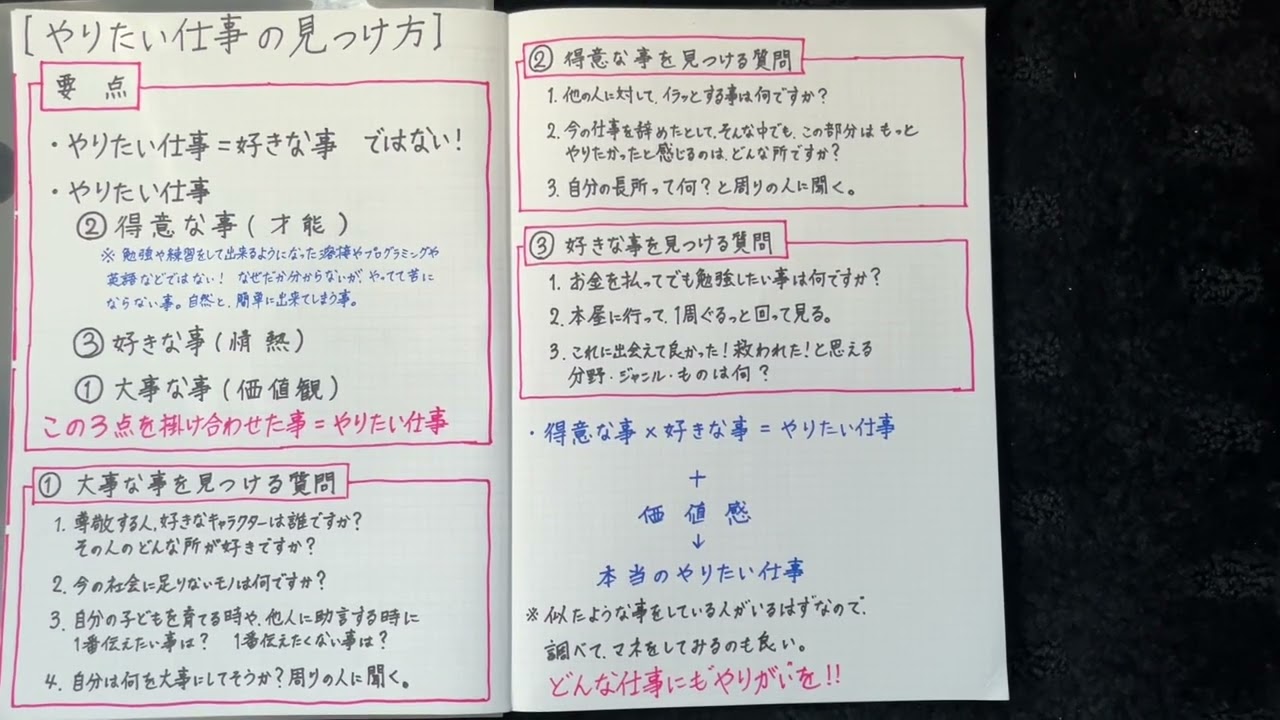 [やりたい仕事の見つけ方]
要点
・やりたい仕事=好きな事 ではない!
・やりたい仕事
②得意な事(才能)
※勉強や練習をして出来るようになった溶接やプログラミングや
英語などではない! なぜだか分からないが、やってて苦に
ならない事。自然と、簡単に出来てしまう事。
③好きな事(情熱)
①大事な事(価値観)
この3点を掛け合わせた事=やりたい仕事
①大事な事を見つける質問
1. 尊敬する人、好きなキャラクターは誰ですか?
その人のどんな所が好きですか?
2. 今の社会に足りないモノは何ですか?
3. 自分の子どもを育てる時や、他人に助言する時に
1番伝えたい事は? 1番伝えたくない事は?
4. 自分は何を大事にしてそうか?周りの人に聞く。
②得意な事を見つける質問
1. 他の人に対して、イラッとする事は何ですか?
2. 今の仕事を辞めたとして、そんな中でも、この部分はもっと
やりたかったと感じるのは、どんな所ですか?
3. 自分の長所って何?と周りの人に聞く。
③好きな事を見つける質問
1. お金を払ってでも勉強したい事は何ですか?
2. 本屋に行って、1周ぐるっと回って見る。
3. これに出会えて良かった!救われた!と思える
分野・ジャンル・ものは何?
・得意な事×好きな事=やりたい仕事
+
価値感
↓
本当のやりたい仕事
※似たような事をしている人がいるはずなので、
調べて、マネをしてみるのも良い。
どんな仕事にも"やりがい"を!!